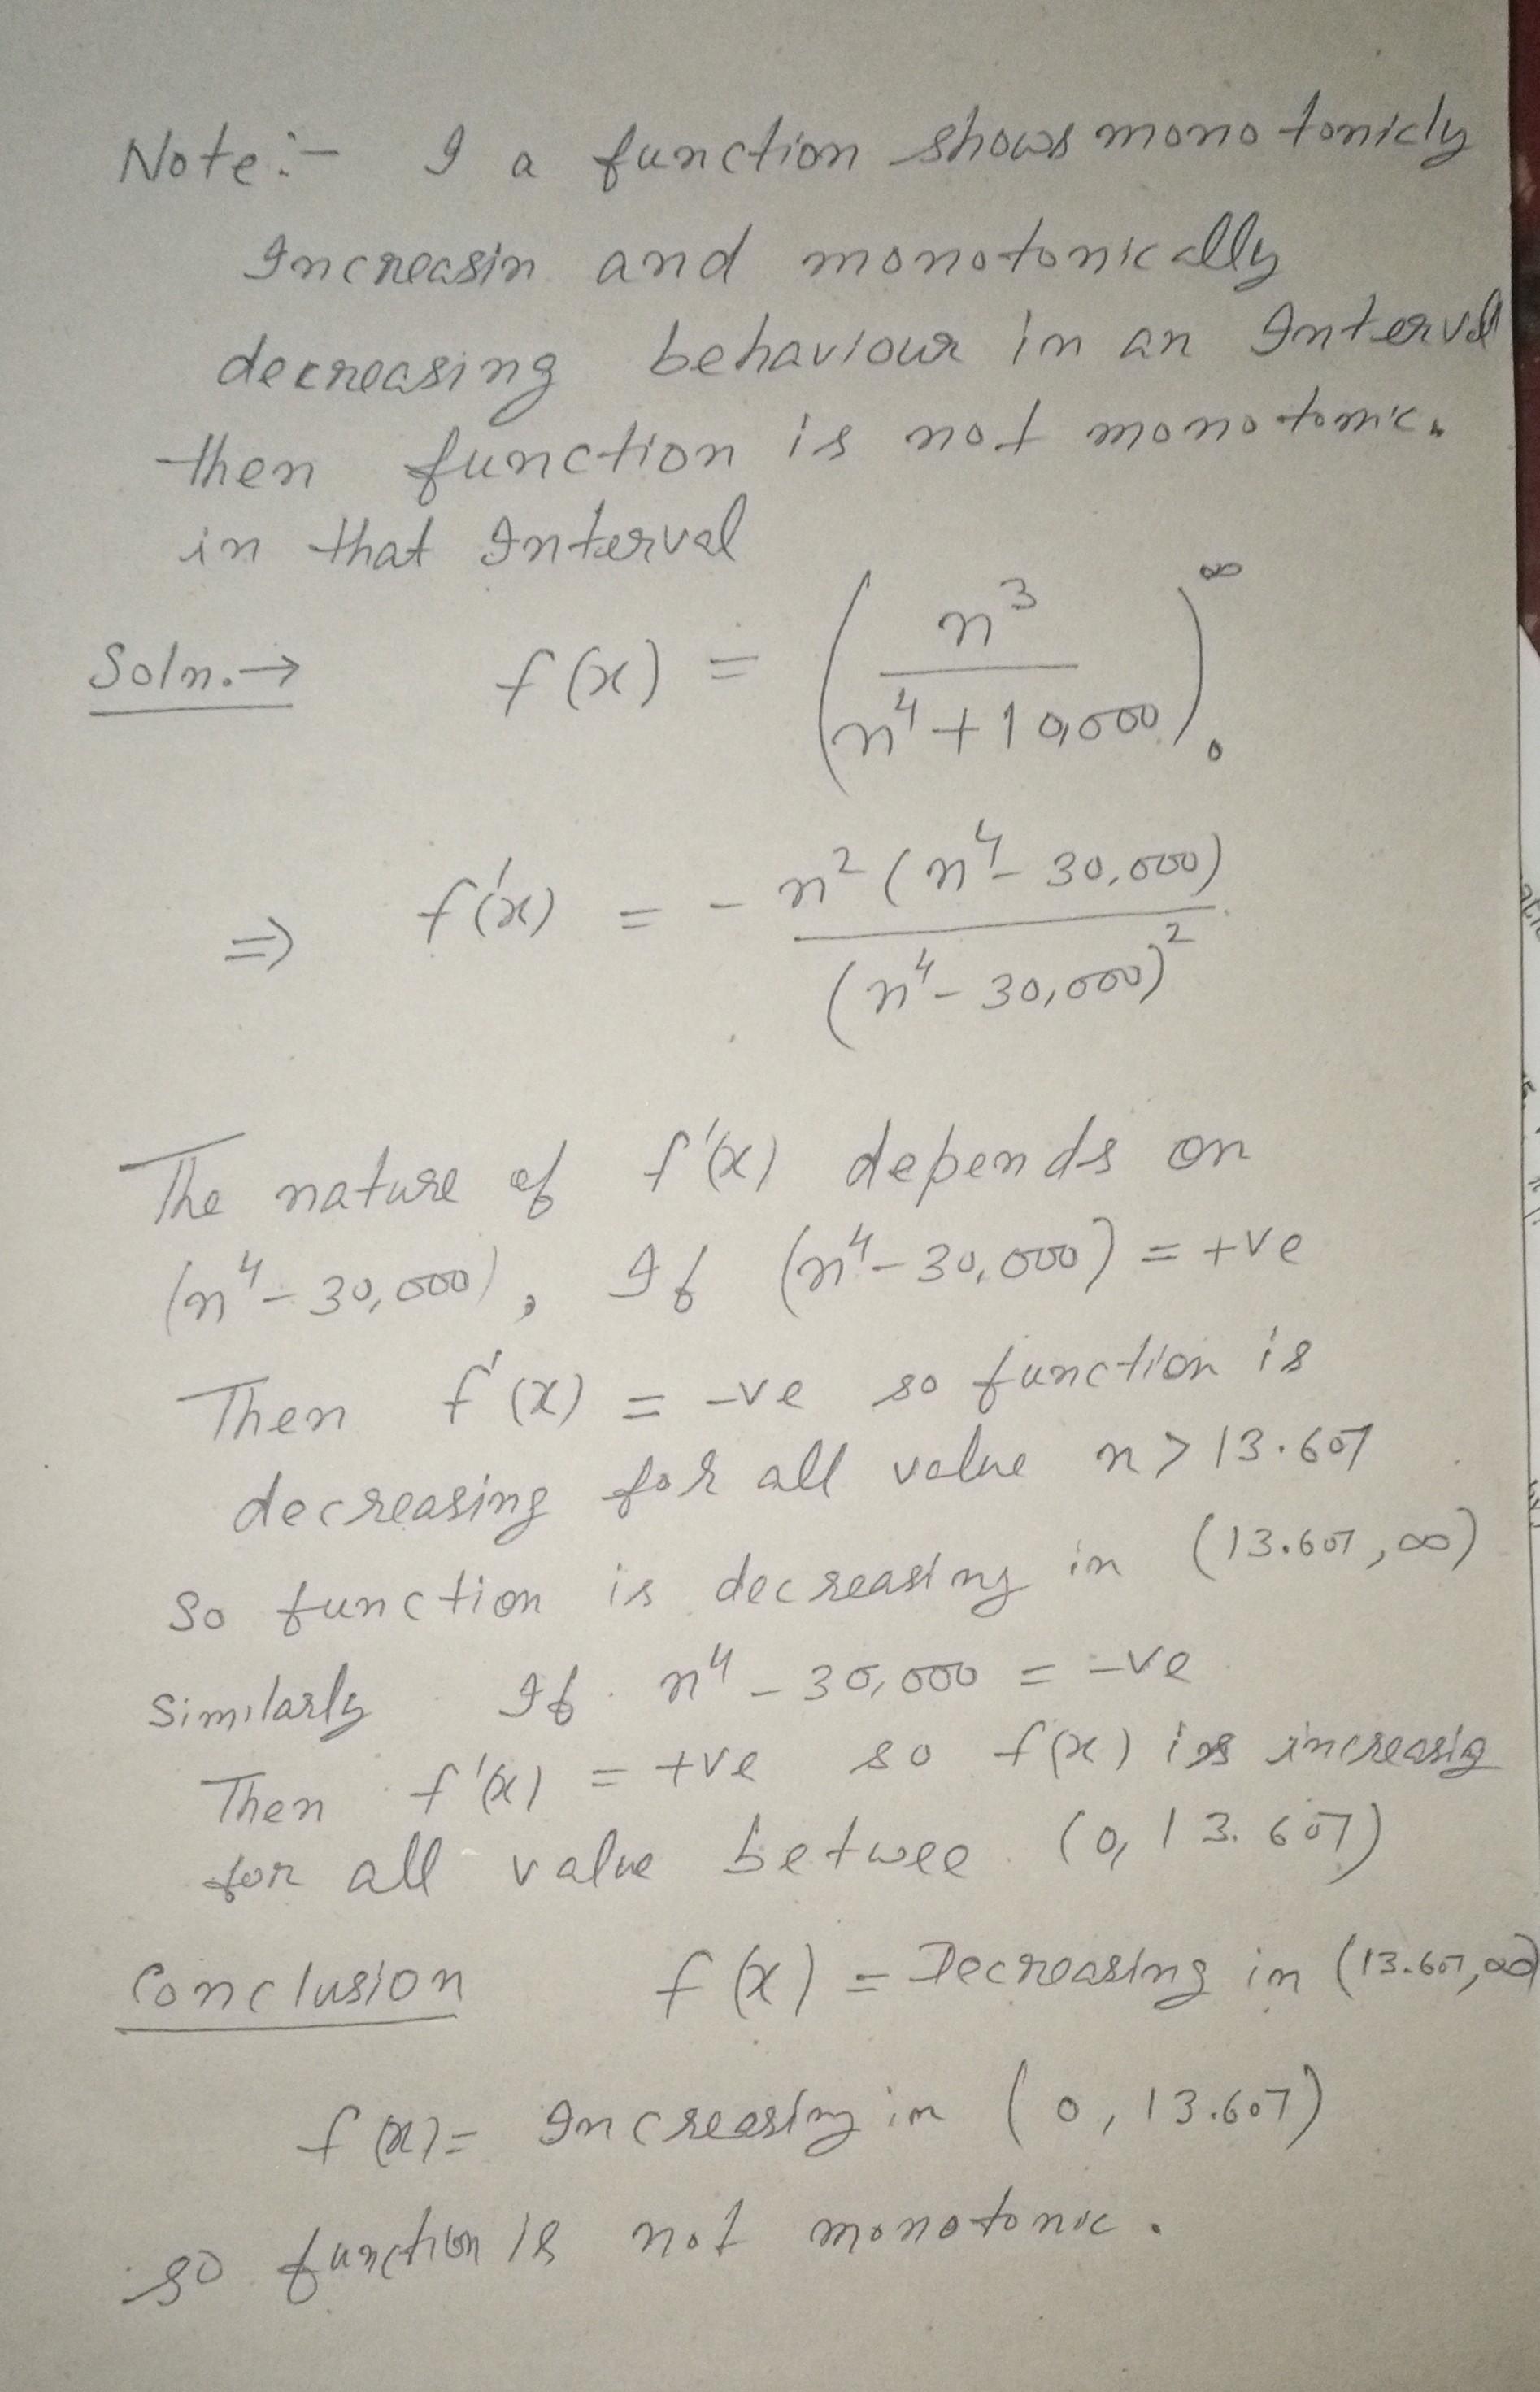 Note:- I a function shows monotonicly
Increasin and monotonically
decreasing behaviour in an Interval
then function is not monotonic.
in that Interval
Soln.→ f(x) = (n³/(n⁴+10,000))₀^∞
⇒ f'(x) = - n²(n⁴-30,000)/(n⁴-30,000)²
The nature of f'(x) depends on
(n⁴-30,000), If (n⁴-30,000) = +ve
Then f'(x) = -ve so function is
decreasing for all value n > 13.607
so function is decreasing in (13.607, ∞)
Similarly If n⁴-30,000 = -ve
Then f'(x) = +ve so f(x) is increasig
for all value betwee (0, 13.607)
Conclusion f(x) = Decreasing in (13.607, ∞)
f(x) = Increasing in (0, 13.607)
so function is not monotonic.